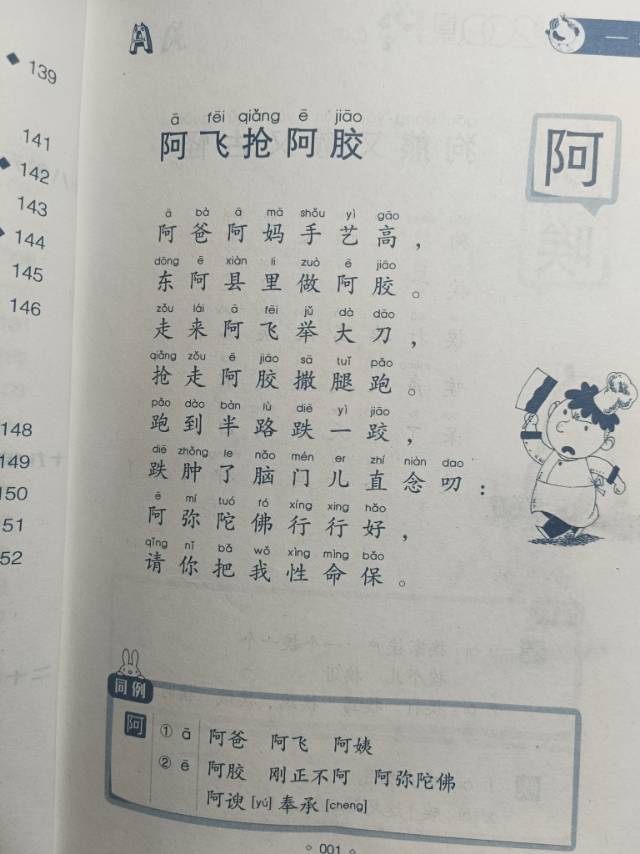 139
141
142
143
144
145
146
148
149
150
51
52
A
ā fēi qiǎng ē jiāo
阿飞抢阿胶
阿
ā bà ā mā shǒu yì gāo
阿爸阿妈手艺高，
dōng ē xiàn li zuò ē jiāo
东阿县里做阿胶。
zǒu lái ā fēi jǔ dà dāo
走来阿飞举大刀，
qiǎng zǒu ē jiāo sā tuǐ pǎo
抢走阿胶撒腿跑。
pǎo dào bàn lù diē yì jiāo
跑到半路跌一跤，
diē zhǒng le nǎo mén er zhí niàn dao
跌肿了脑门儿直念叨：
ē mí tuó fó xíng xing hǎo
阿弥陀佛行行好，
qǐng nǐ bǎ wǒ xìng mìng bǎo
请你把我性命保。
同例
阿
① ā 阿爸 阿飞 阿姨
② ē 阿胶 刚正不阿 阿弥陀佛
阿谀[yú]奉承[cheng]
001